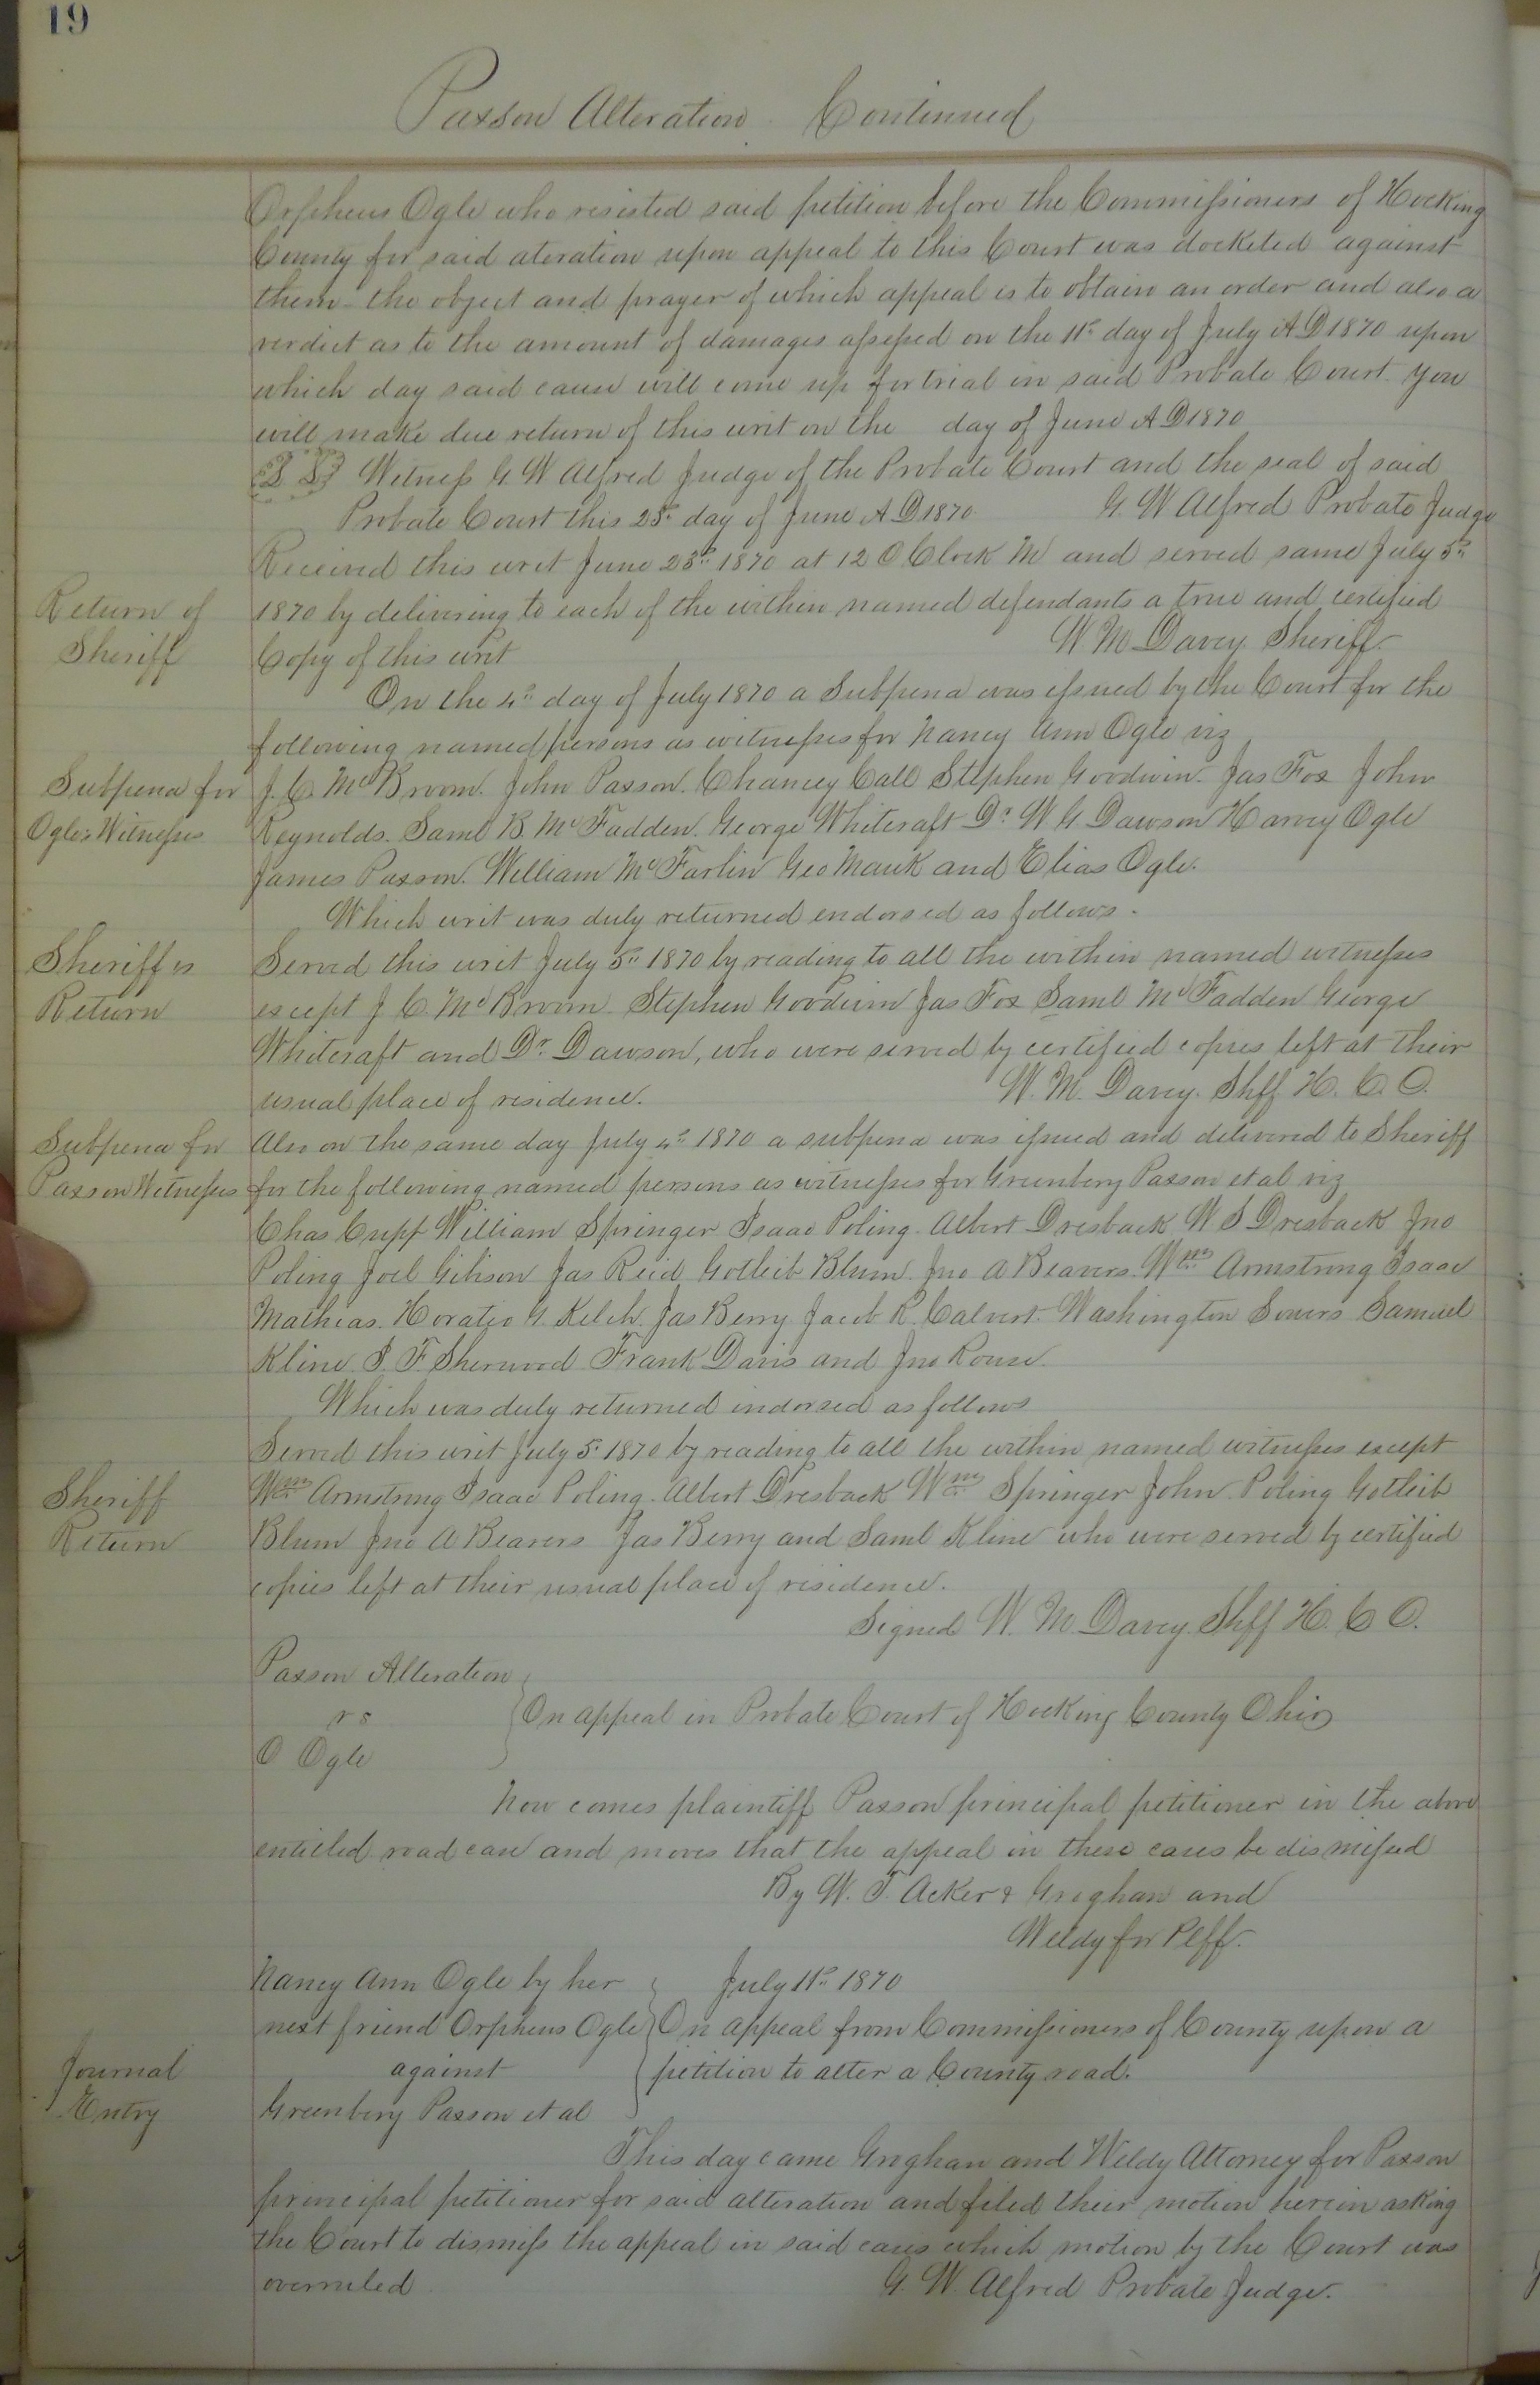 19
Paxson Alteration Continued
Orpheus Ogle who resisted said petition before the Commissioners of Hocking
County for said ateration upon appeal to this Court was docketed against
them - the object and prayer of which appeal is to obtain an order and also a
verdict as to the amount of damages assessed on the 11th day of July A D 1870 upon
which day said cause will come up for trial in said Probate Court. You
will make due return of this writ on the day of June A D 1870
L S Witness G. W Alfred Judge of the Probate Court and the seal of said
Probate Court this 28th day of June A D 1870 G. W Alfred Probate Judge
Received this writ June 28th 1870 at 12 O Clock M and served same July 5th
Return of 1870 by delivering to each of the within named defendants a true and certified
Sheriff Copy of this writ W M Davey Sheriff
On the 4th day of July 1870 a Subpena was issued by the Court for the
following named persons as witnesses for Nancy Ann Ogle viz
Subpena for J. C. McBroom. John Paxson. Chancey Call Stephen Goodwin. Jas Fox John
Ogles Witnesses Reynolds. Saml B. McFadden. George Whitcraft Dr W. G Dawson Harvey Ogle
James Paxson. William McFarlin Geo Mauk and Elias Ogle.
Which writ was duly returned endorsed as follows.
Sheriffs Served this writ July 5th 1870 by reading to all the within named witnesses
Return except J C. McBroom Stephen Goodwin Jas Fox Saml McFadden George
Whitcraft and Dr. Dawson, who were served by certified copies left at their
usual place of residence. W. M. Davey. Shff H. C. O.
Subpena for Also on the same day July 4th 1870 a subpena was issued and delivered to Sheriff
Paxson Witnesses for the following named persons as witnesses for Greenbery Paxson et al viz
Chas Cupp William Springer Isaac Poling. Albert Dresback W S Dresback Jno
Poling Joel Gibson Jas Reid Gotleib Blum. Jno A Beavers. Wm Armstrong Isaac
Mathias. Horatio G. Kelch. Jas Berry Jacob R. Calvert. Washington Sowers Samuel
Kline J. F. Sherwood Frank Davis and Jno Rouse.
Which was duly returned indorsed as follows
Served this writ July 5th 1870 by reading to all the within named witnesses except
Sheriff Wm Armstrong Isaac Poling. Albert Dresback Wm Springer John Poling Gotleib
Return Blum Jno A Beavers Jas Berry and Saml Kline who were served by certified
copies left at their usual place of residence.
Signed W. M. Davey. Shff H. C O.
Paxson Alteration
vs On appeal in Probate Court of Hocking County Ohio
O Ogle
Now comes plaintiff Paxson principal petitioner in the above
entitled road case and moves that the appeal in these cases be dismissed
By W. T. Acker & Groghan and
Weldy for Plff.
Nancy Ann Ogle by her July 11th 1870
next friend Orpheus Ogle On appeal from Commissioners of County upon a
Journal against petition to alter a County road.
Entry Greenbery Paxson et al
This day came Groghan and Weldy Attorney for Paxson
principal petitioner for said alteration and filed their motion herein asking
the Court to dismiss the appeal in said cases which motion by the Court was
overruled G. W. Alfred Probate Judge.